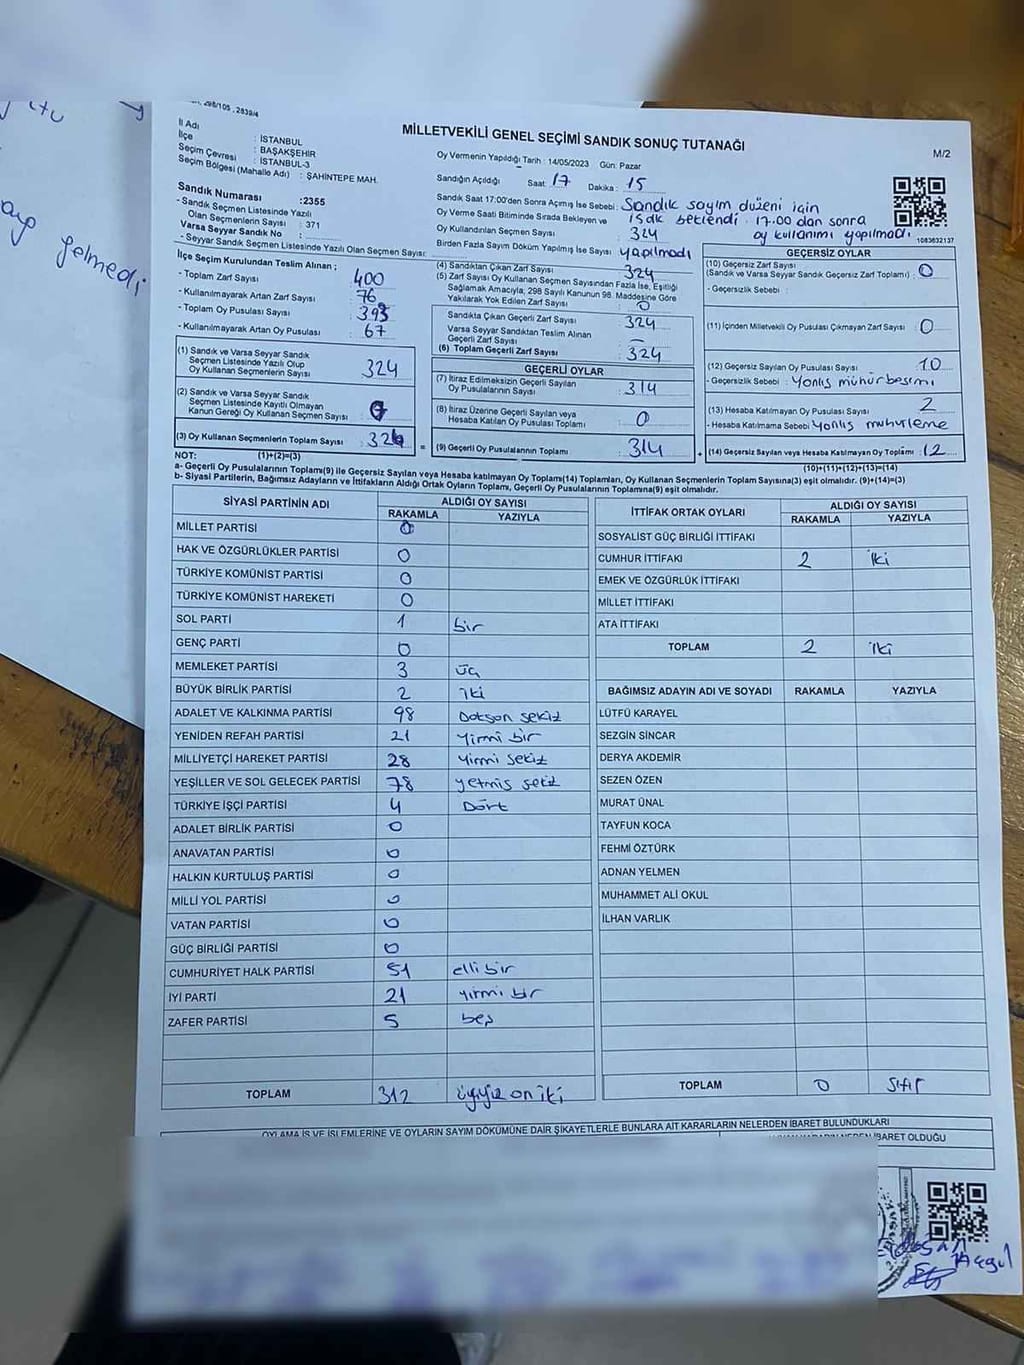 298/105 , 2839/4
MİLLETVEKİLİ GENEL SEÇİMİ SANDIK SONUÇ TUTANAĞI
M/2
İl Adı : İSTANBUL
İlçe : BAŞAKŞEHİR
Seçim Çevresi : İSTANBUL-3
Seçim Bölgesi (Mahalle Adı) : ŞAHİNTEPE MAH.
Sandık Numarası :2355
- Sandık Seçmen Listesinde Yazılı
Olan Seçmenlerin Sayısı : 371
Varsa Seyyar Sandık No :
- Seyyar Sandık Seçmen Listesinde Yazılı Olan Seçmen Sayısı:
Oy Vermenin Yapıldığı Tarih : 14/05/2023 Gün: Pazar
Sandığın Açıldığı Saat: 17 Dakika : 15
Sandık Saat 17:00'den Sonra Açımış İse Sebebi: Sandık sayım düzeni için
Oy Verme Saati Bitiminde Sırada Bekleyen ve 15 dk beklendi. 17.00 dan sonra
Oy Kullandırılan Seçmen Sayısı 324 oy kullanımı yapılmadı.
Birden Fazla Sayım Döküm Yapılmış İse Sayısı yapılmadı
1083632137
İlçe Seçim Kurulundan Teslim Alınan ;
- Toplam Zarf Sayısı : 400
- Kullanılmayarak Artan Zarf Sayısı : 76
- Toplam Oy Pusulası Sayısı : 393
- Kullanılmayarak Artan Oy Pusulası : 67
(1) Sandık ve Varsa Seyyar Sandık
Seçmen Listesinde Yazılı Olup
Oy Kullanan Seçmenlerin Sayısı : 324
(2) Sandık ve Varsa Seyyar Sandık
Seçmen Listesinde Kayıtlı Olmayan
Kanun Gereği Oy Kullanan Seçmen Sayısı :
(3) Oy Kullanan Seçmenlerin Toplam Sayısı
(4) Sandıktan Çıkan Zarf Sayısı : 324
(5) Zarf Sayısı Oy Kullanan Seçmen Sayısından Fazla İse, Eşitliği
Sağlamak Amacıyla, 298 Sayılı Kanunun 98. Maddesine Göre
Yakılarak Yok Edilen Zarf Sayısı : 0
Sandıkta Çıkan Geçerli Zarf Sayısı : 324
Varsa Seyyar Sandıktan Teslim Alınan
Geçerli Zarf Sayısı : —
(6) Toplam Geçerli Zarf Sayısı : 324
GEÇERLİ OYLAR
(7) İtiraz Edilmeksizin Geçerli Sayılan
Oy Pusulalarının Sayısı : 314
(8) İtiraz Üzerine Geçerli Sayılan veya
Hesaba Katılan Oy Pusulası Toplamı : 0
= (9) Geçerli Oy Pusulalarının Toplamı : 314
GEÇERSİZ OYLAR
(10) Geçersiz Zarf Sayısı
(Sandık ve Varsa Seyyar Sandık Geçersiz Zarf Toplamı) : 0
- Geçersizlik Sebebi :
(11) İçinden Milletvekili Oy Pusulası Çıkmayan Zarf Sayısı : 0
(12) Geçersiz Sayılan Oy Pusulası Sayısı : 10
- Geçersizlik Sebebi : Yanlış mühür basımı
(13) Hesaba Katılmayan Oy Pusulası Sayısı : 2
- Hesaba Katılmama Sebebi Yanlış mühürleme
+ (14) Geçersiz Sayılan veya Hesaba Katılmayan Oy Toplamı : 12
NOT: (1)+(2)=(3)
(10)+(11)+(12)+(13)=(14)
a- Geçerli Oy Pusulalarının Toplamı(9) ile Geçersiz Sayılan veya Hesaba katılmayan Oy Toplamı(14) Toplamları, Oy Kullanan Seçmenlerin Toplam Sayısına(3) eşit olmalıdır. (9)+(14)=(3)
b- Siyasi Partilerin, Bağımsız Adayların ve İttifakların Aldığı Ortak Oyların Toplamı, Geçerli Oy Pusulalarının Toplamına(9) eşit olmalıdır.
SİYASİ PARTİNİN ADI ALDIĞI OY SAYISI
RAKAMLA YAZIYLA
MİLLET PARTİSI 0
HAK VE ÖZGÜRLÜKLER PARTİSİ 0
TÜRKİYE KOMÜNİST PARTİSİ 0
TÜRKİYE KOMÜNİST HAREKETİ 0
SOL PARTİ 1 bir
GENÇ PARTİ 0
MEMLEKET PARTİSİ 3 üç
BÜYÜK BİRLİK PARTİSİ 2 iki
ADALET VE KALKINMA PARTİSİ 98 Dotson sekiz
YENİDEN REFAH PARTİSİ 21 Yirmi bir
MİLLİYETÇİ HAREKET PARTİSİ 28 Yirmi sekiz
YEŞİLLER VE SOL GELECEK PARTİSİ 78 yetmiş sekiz
TÜRKİYE İŞÇİ PARTİSİ 4 Dört
ADALET BİRLİK PARTİSİ 0
ANAVATAN PARTİSİ 0
HALKIN KURTULUŞ PARTİSİ 0
MİLLİ YOL PARTİSİ 0
VATAN PARTİSİ 0
GÜÇ BİRLİĞİ PARTİSİ 0
CUMHURİYET HALK PARTİSİ 51 elli bir
İYİ PARTİ 21 yirmi bir
ZAFER PARTİSİ 5 beş
TOPLAM 312 üçyüz on iki
İTTİFAK ORTAK OYLARI ALDIĞI OY SAYISI
RAKAMLA YAZIYLA
SOSYALİST GÜÇ BİRLİĞİ İTTİFAKI
CUMHUR İTTİFAKI 2 iki
EMEK VE ÖZGÜRLÜK İTTİFAKI
MİLLET İTTİFAKI
ATA İTTİFAKI
TOPLAM 2 iki
BAĞIMSIZ ADAYIN ADI VE SOYADI RAKAMLA YAZIYLA
LÜTFÜ KARAYEL
SEZGİN SİNCAR
DERYA AKDEMİR
SEZEN ÖZEN
MURAT ÜNAL
TAYFUN KOCA
FEHMİ ÖZTÜRK
ADNAN YELMEN
MUHAMMET ALİ OKUL
İLHAN VARLIK
TOPLAM 0 Sıfır
OYLAMA İŞ VE İŞLEMLERİNE VE OYLARIN SAYIM DÖKÜMÜNE DAİR ŞİKAYETLERLE BUNLARA AİT KARARLARIN NELERDEN İBARET BULUNDUKLARI
İBARET OLDUĞU
gelmedi